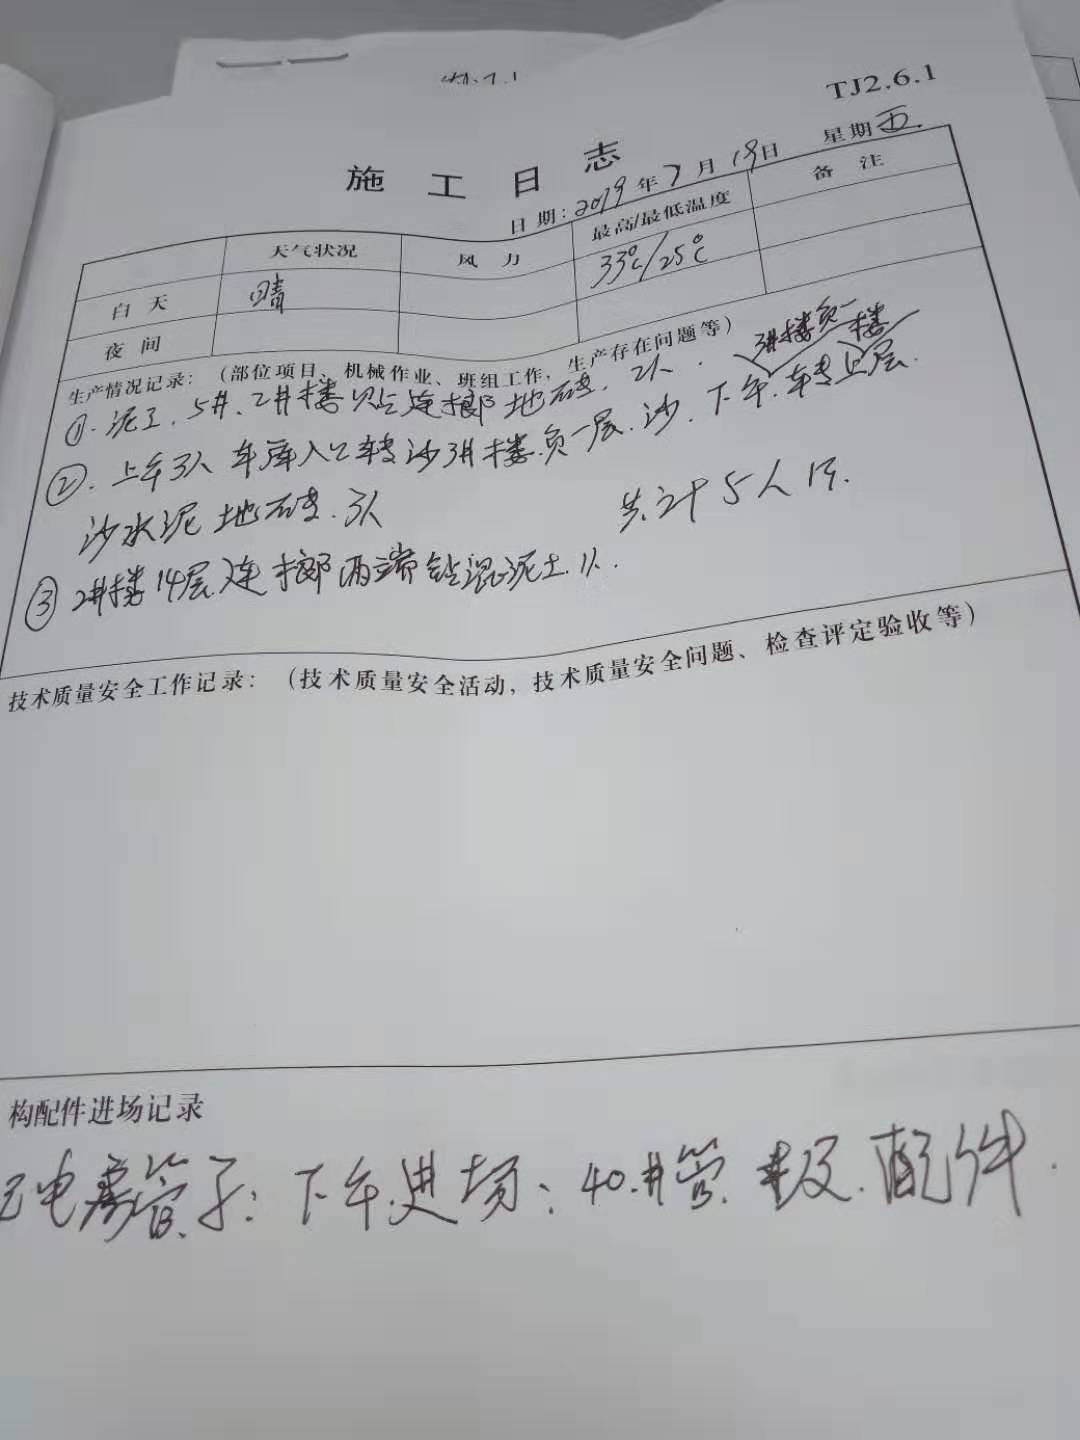 TJ2.6.1
施工日志
日期：2019年7月19日 星期五
天气状况 风力 最高/最低温度 备注
白天 晴 33℃/25℃
夜间
生产情况记录：（部位项目、机械作业、班组工作，生产存在问题等）
3#楼负一楼
①.泥工.5#.2#楼 连廊地砖.2人.
②.上午3人车库入口转沙3#楼.负一层.沙.下午.转 层.
沙水泥地砖.3人 共计5人
③2#楼14层连廊两端 混泥土.1人.
技术质量安全工作记录：（技术质量安全活动，技术质量安全问题、检查评定验收等）
构配件进场记录
电 管子：下午.进场：40.#管. 及.配件.